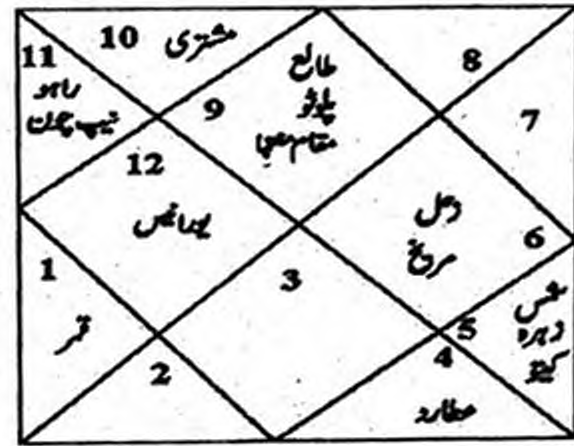 10 مشتری
11
راہو
نیپ چون
9
طالع
پلوٹو
8
7
12
یورانس
زحل
مریخ
6
1
قمر
3
2
5
شمس
زہرہ
کیتو
4
عطارد